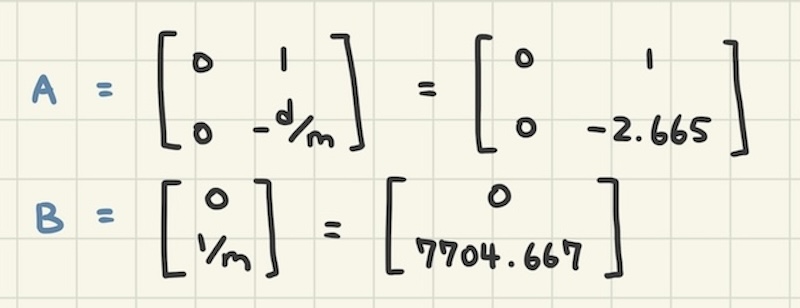 A = [0 1; 0 -d/m] = [0 1; 0 -2.665]
B = [0; 1/m] = [0; 7704.667]